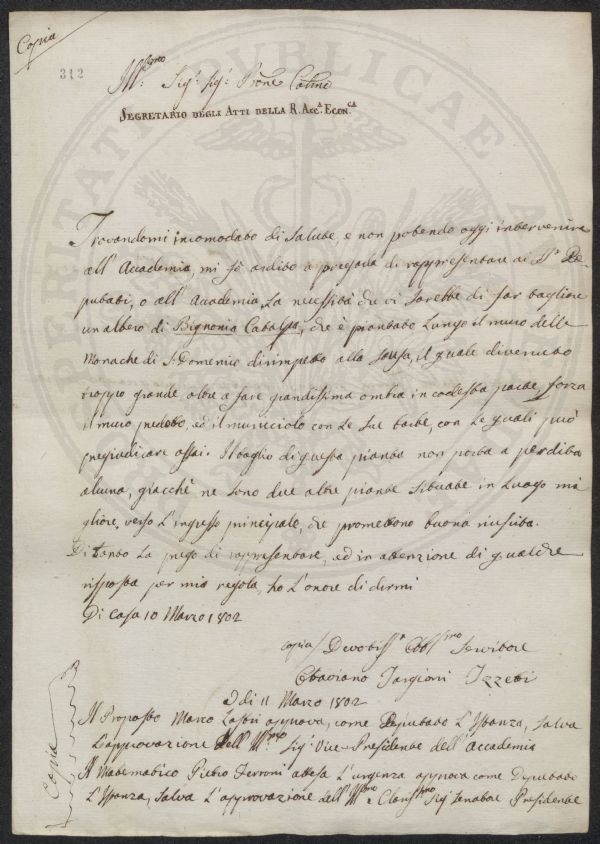 Copia
312
Ill:mo Sig.r Sig.r Prone Col.mo
SEGRETARIO DEGLI ATTI DELLA R. ACC.A ECON.CA
Trovandomi incomodato di salute, e non potendo oggi intervenire
all' Accademia, mi fò ardito a pregarla di rappresentare ai SS.ri De
putati, o all' Accademia la necessità che vi sarebbe di far tagliare
un albero di Bignonia Catalpa, che è piantato lungo il muro delle
Monache di S. Domenico dirimpetto alla , il quale divenuto
troppo grande oltre a fare grandissima ombra in codesta parte, forza
il muro predetto, ed il muricciolo con le sue barbe, con le quali può
pregiudicare assai. Il taglio di questa pianta non porta a perdita
alcuna, giacchè ne sono due altre piante situate in luogo mi
gliore, verso l'ingresso principale, che promettono buona riuscita.
Di tanto la prego di rappresentare, ed in attenzione di qualche
risposta per mia regola, ho l'onore di dirmi
Di Casa 10 Marzo 1802
copia/ Devotiss.o Obbl.mo Servitore
Ottaviano Targioni Tozzetti
A dì 11 Marzo 1802
Il Proposto Marco Lastri approva, come Deputato l'Istanza, salva
l'approvazione dell' Ill.mo Sig.r Vice-Presidente dell' Accademia
Il Matematico Pietro Ferroni attesa l'urgenza approva come Deputato
l'Istanza, salva l'approvazione dell' Ill.mo e Clariss.mo Sig.r Senatore Presidente
Copia